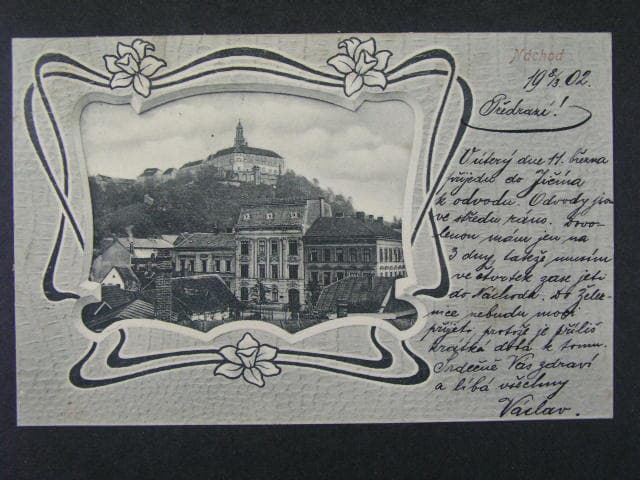 Náchod
19 8/3 02.
Předrazí!
V úterý dne 11. března
přijedu do Jičína
k odvodu. Odvody jsou
ve středu ráno. Dovo-
lenou mám jen na
3 dny, takže musím
ve čtvrtek zase jeti
do Náchoda. Do Žele-
nice nebudu moci
přijeti, protože je příliš
krátká doba k tomu.
Srdečně Vás zdraví
a líbá všechny
Václav.